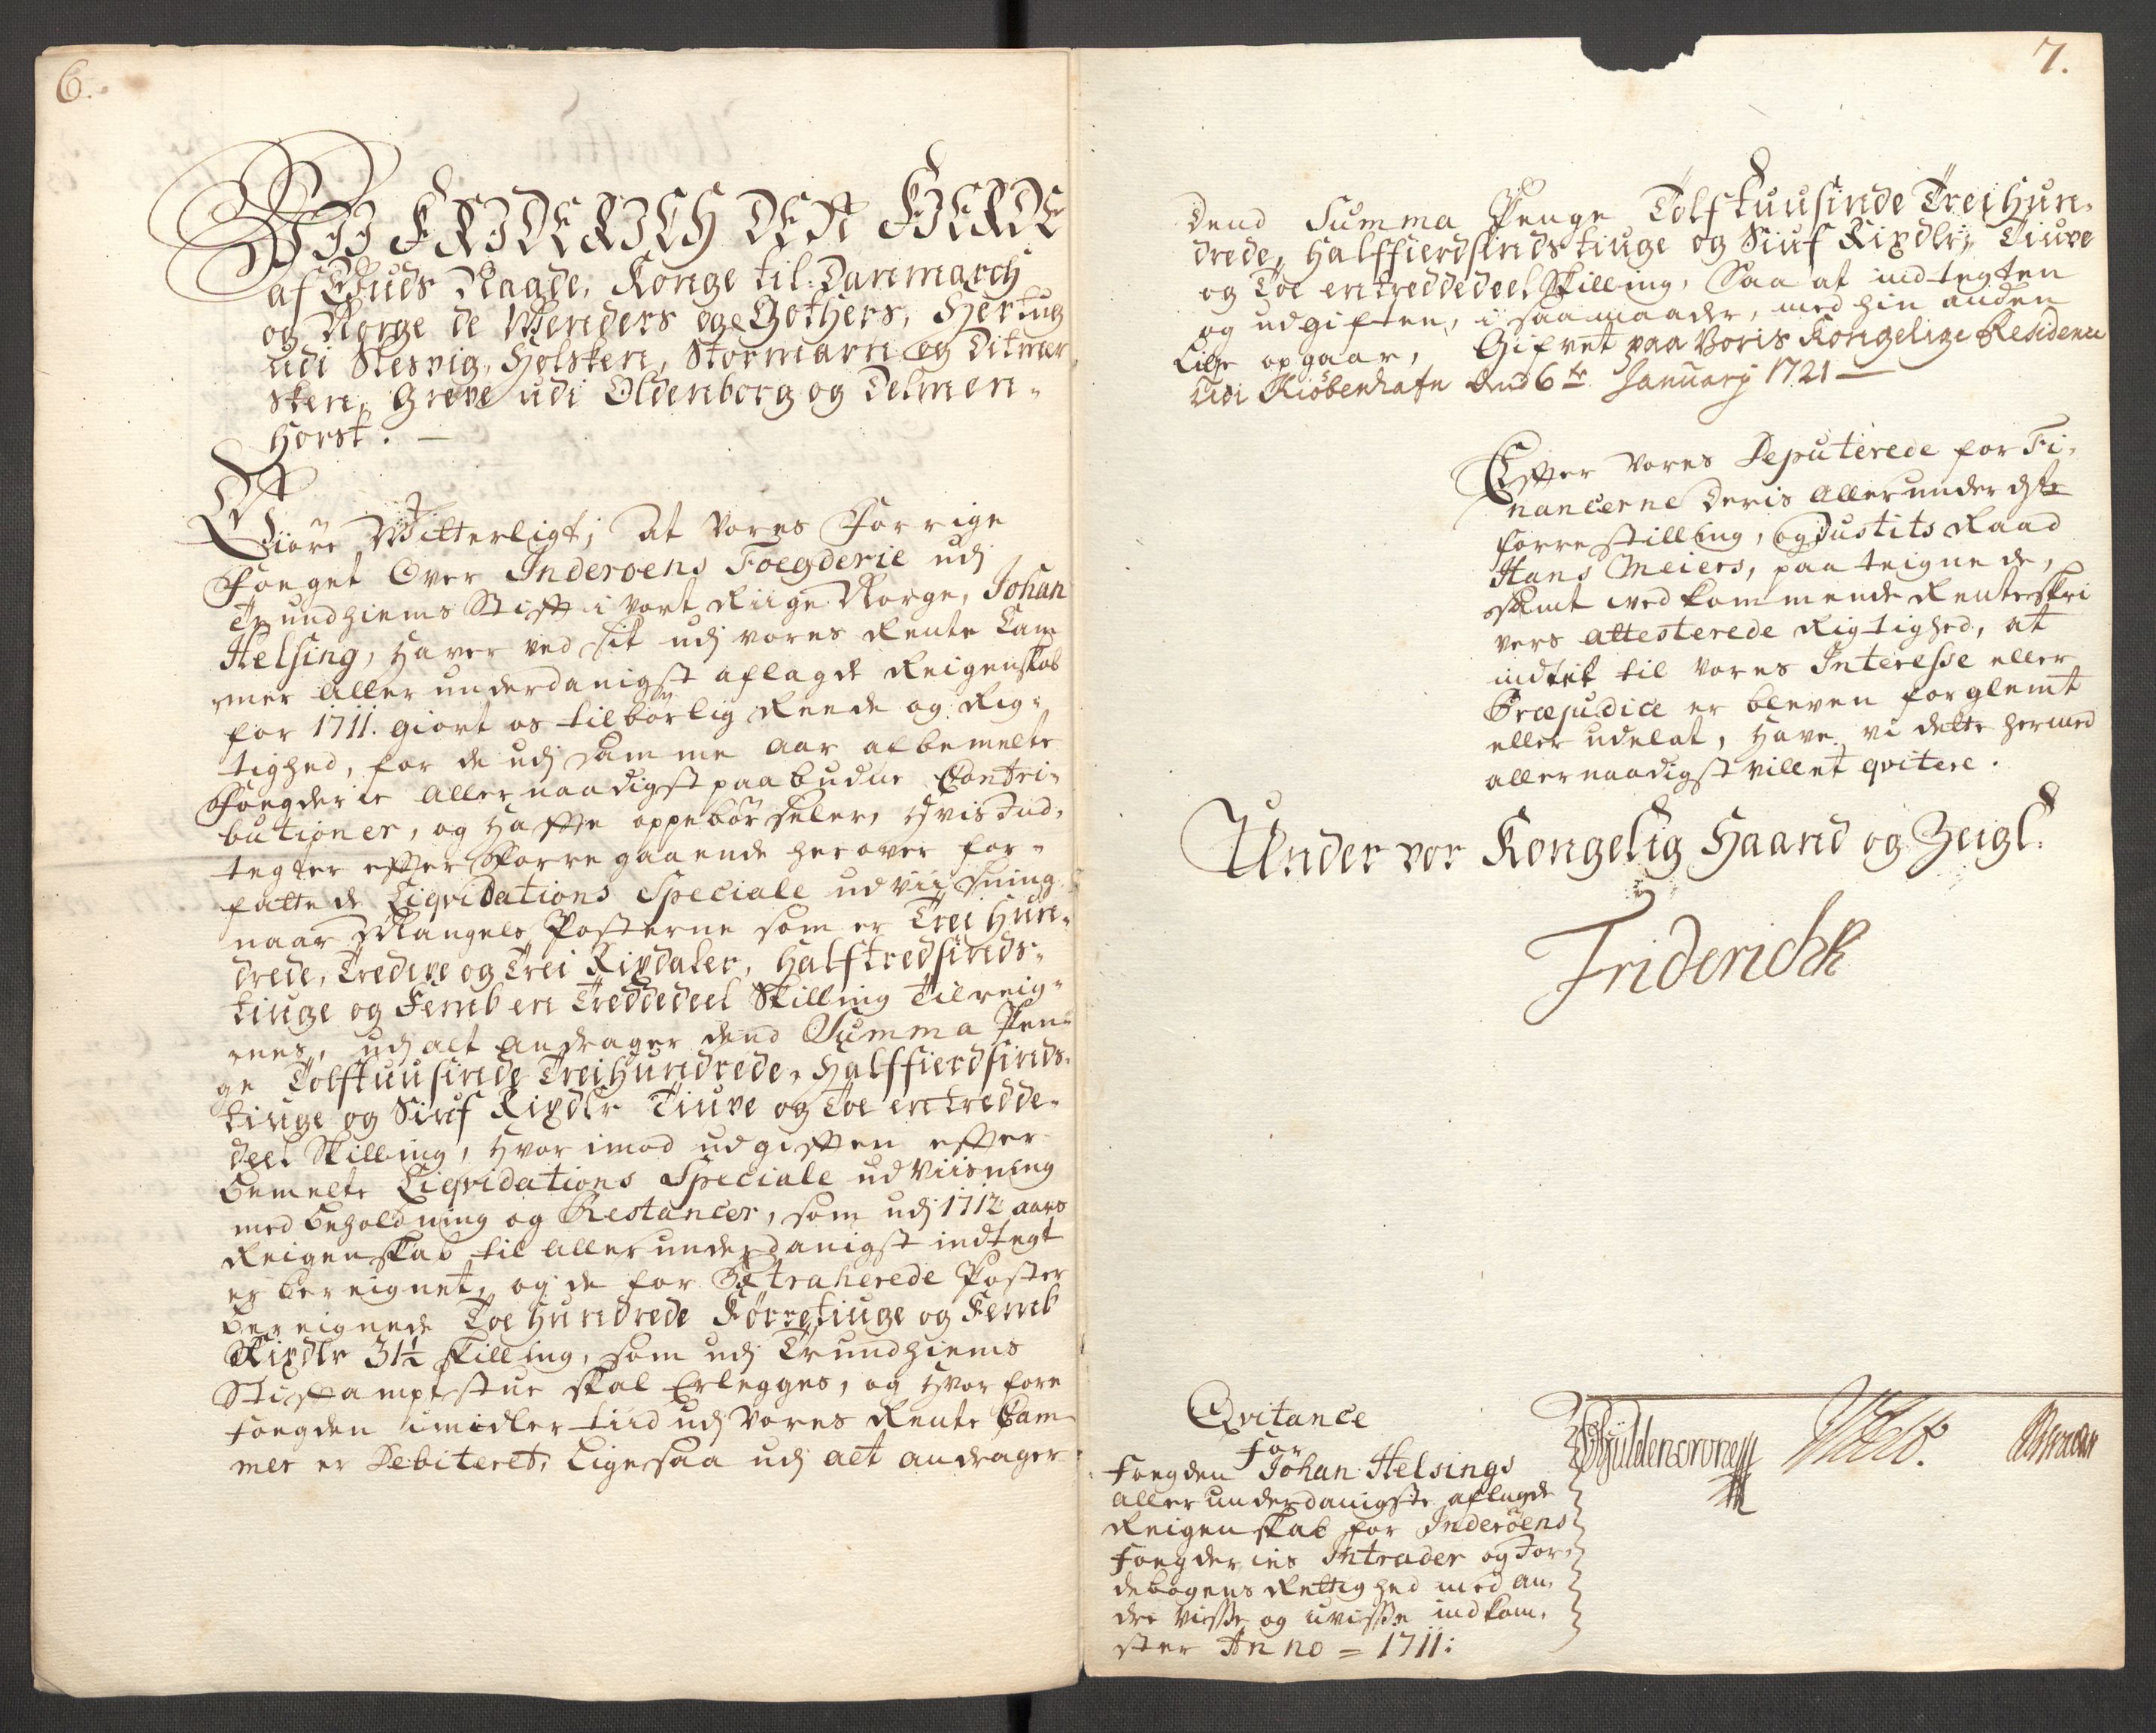 6.
VII FRIDERICH DEN FIERDE
af Guds Naade, Konge til Danmarch
og Norge de Wenders og Gothers, Hertug
udi Slesvig, Holsten, Stormarn og Ditmar
sken, Greve udi Oldenborg og Delmen-
horst.
Giøre Witterligt, At Vores Forrige
Foeget Over Inderoens Foegderie udj
Trundhiems Stifft i vort Riige Norge, Johan
Helsing, haver ved sit udj vores Rente Cam
mer aller underdanigst aflagde Reigenskab
for 1711. giort os tilbörlig Reede og Rig-
tighed, for de udj samme Aar af bemelte
Foegderie Allernaadigst paabudne Contri-
butioner, og haffte oppebörseler, Hvis Ind-
tegter effter Forregaaende herover for-
fattede Liqvidations Speciale udviisning
naar Mangels Posterne som er Trei Hun-
drede, Tredive og Trei Rixdaler, Halftredsinds-
tiuge og Femb en Treddedeel Skilling Tilreig-
nes, udj alt Andrager dend Summa Pen-
ge Tolftuusinde Trei Hundrede, Halffierdsinds-
tiuge og Siuf Rixdlr Tiuve og Toe en tredde-
deel Skilling, Hvor imod udgifften effter
bemelte Liqvidations Speciale udviisning
med beholdning og Restancer, som udj 1712 aars
Reigenskab til Allerunderdanigst indtegt
er bereignet, og de for Extraherede Poster
bereignede Toe Hundrede Førretiuge og Femb
Rixdlr 31½ skilling, som udj Trundhiems
Stifftamptstue skal Erlegges, og Hvor fore
Foegden imidlertiid udj Vores Rente Cam-
mer er Debiteret, Ligesaa udj alt andrager
7.
dend Summa Penge Tolftuusinde Trei Hun-
drede, Halffierdsindstiuge og Siuf Rixdlr, Tiuve
og Toe en treddedeel Skilling, Saa at indtegten
og udgiften, i saamaader, med hin anden
Lige opgaar, Gifvet paa Voris Kongelige Residence
Udi Kiöbenhafn dend 6te January 1721
Effter Vores Deputerede for Fi-
nancerne Deris Allerunderdste
forrestilling, og Justits Raad
Hans Meiers, paateignede,
samt vedkommende Renteskri
vers attesterede Rigtighed, at
indtet til Vores Interesse eller
Præjudice er bleven forglemt
eller udelat, Have vi dette hermed
allernaadigst villet qvitere.
Under vor Kongelig Haand og Zeigl.
Friderich R
Qvitance
For
Foegden Johan Helsings
allerunderdanigste aflagde
Reigenskab for Inderöens
Foegderies Intrader og Jor-
debogens Rettighed med an-
dre visse og uvisse indkom-
ster Anno = 1711:
Gÿldencrone